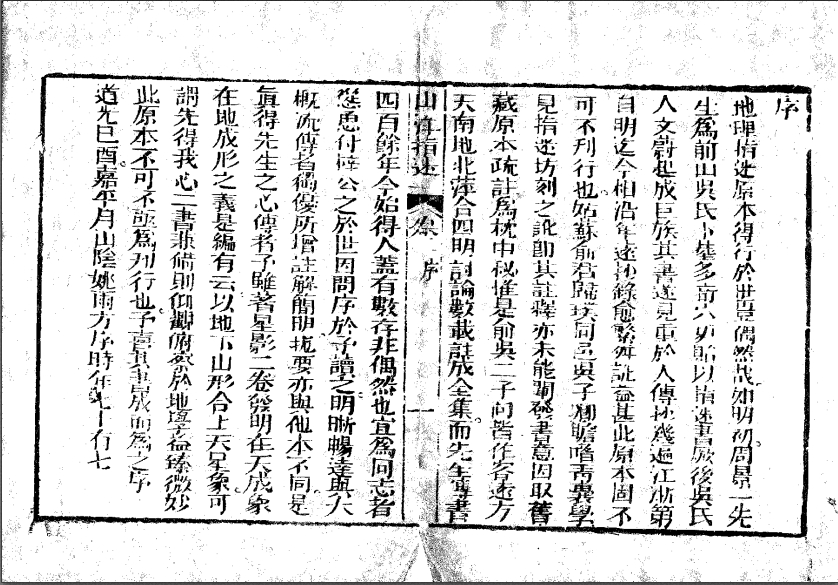 序
地理指迷原本得行於世豈偶然哉如明初周景一先
生爲前山吳氏卜墓多奇穴更貽以指迷書厥後吳氏
人文蔚起成巨族其書遂見重於人傳抄幾遍江浙第
自明迄今相沿年遠抄錄愈繁舛訛益甚此原本固不
可不刊行也姑蘇俞君歸璞同邑吳子卿瞻嗜青囊學
見指迷坊刻之訛即其註釋亦未能闡發書意因取舊
藏原本疏註爲枕中秘惟是俞吳二子向皆作客遠方
天南地北薄合四明討論數載註成全集而先生每書
山洋指迷 叅序 一
四百餘年今始得人蓋有數存非偶然也宜爲同志者
慫恿付梓公之於世因問序於予讀之明晰暢達與大
概流傳者稱優所增註解簡明扼要亦與他本不同是
眞得先生之心傳者予雖著星影二卷發明在天成象
在地成形之義是編有云以地下山形合上天星象可
謂先得我心二書兼備則仰觀俯察於地學益臻微妙
此原本不可不亟爲刊行也予喜其書成而爲之序
道光己酉嘉平月山陰姚雨方序時年九十有七